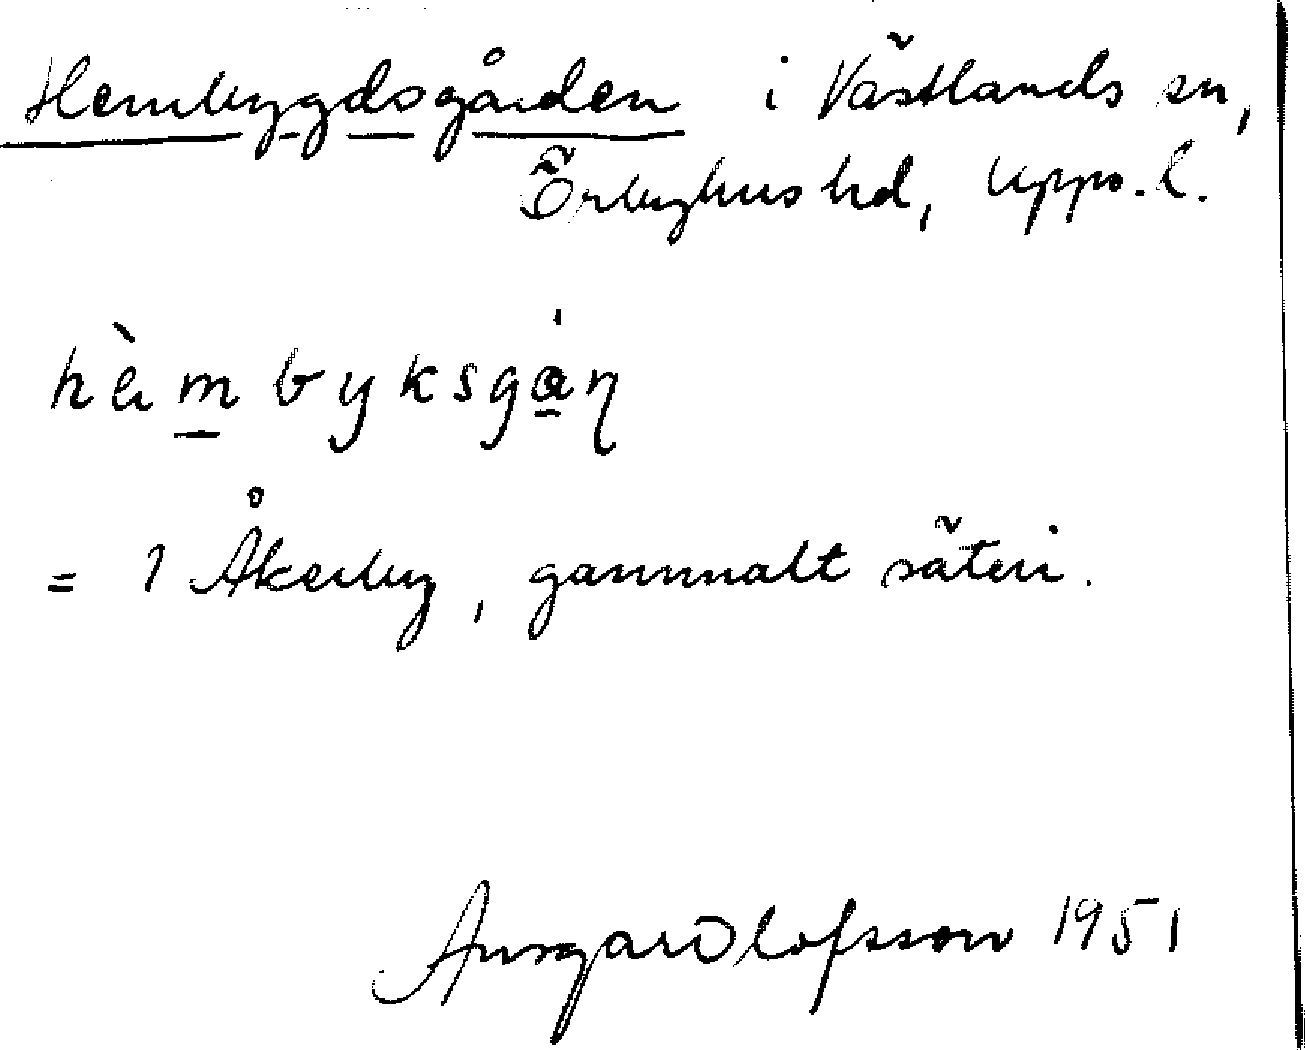 Hembygdsgården i Västlands sn,
Örbyhus hd, Upps. l.
hèm̲byksgå̲ṇ
= 1 Åkerby, gammalt säteri.
Ansgar Olofsson 1951